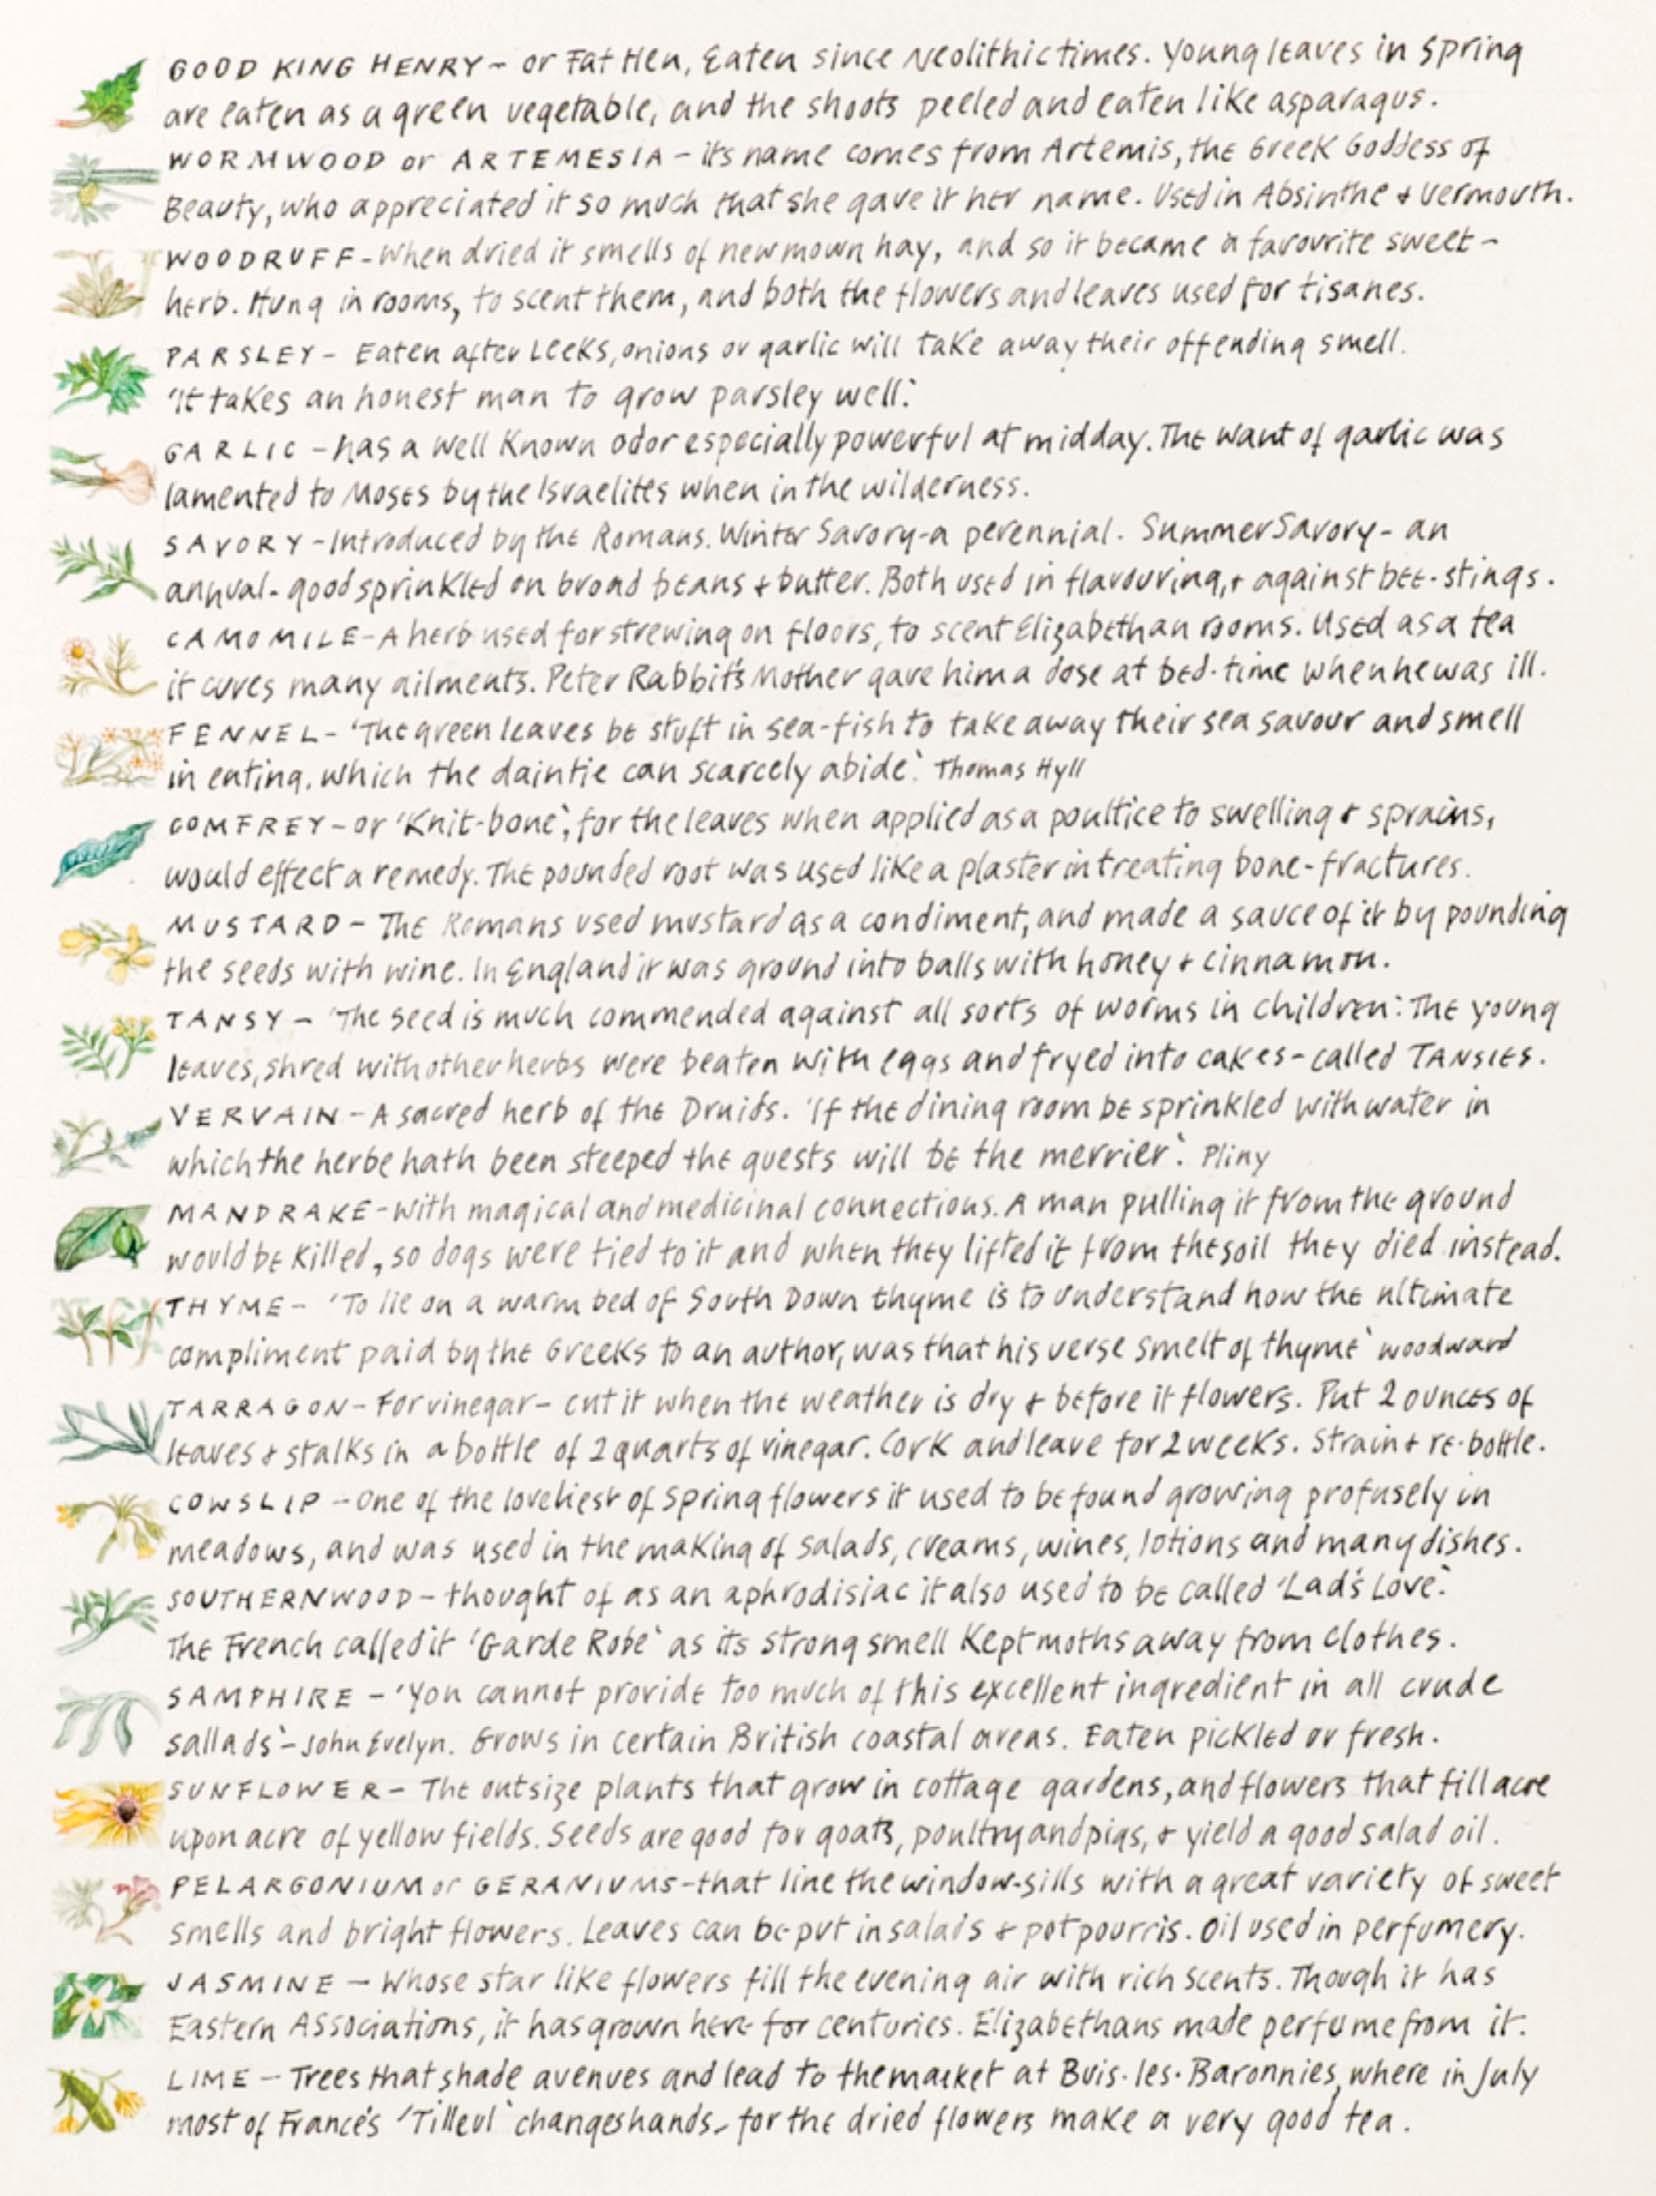 GOOD KING HENRY - or Fat Hen, Eaten since Neolithic times. Young leaves in Spring
are eaten as a green vegetable, and the shoots peeled and eaten like asparagus.
WORMWOOD or ARTEMESIA - its name comes from Artemis, the Greek Goddess of
Beauty, who appreciated it so much that she gave it her name. Used in Absinthe + Vermouth.
WOODRUFF - When dried it smells of new mown hay, and so it became a favourite sweet-
herb. Hung in rooms, to scent them, and both the flowers and leaves used for tisanes.
PARSLEY - Eaten after Leeks, onions or garlic will take away their offending smell.
'It takes an honest man to grow parsley well'.
GARLIC - has a well known odor especially powerful at midday. The want of garlic was
lamented to Moses by the Israelites when in the wilderness.
SAVORY - Introduced by the Romans. Winter Savory - a perennial. Summer Savory - an
annual - good sprinkled on broad beans + butter. Both used in flavouring, + against bee-stings.
CAMOMILE - A herb used for strewing on floors, to scent Elizabethan rooms. Used as a tea
it cures many ailments. Peter Rabbit's Mother gave him a dose at bed-time when he was ill.
FENNEL - 'The green leaves be stuft in sea-fish to take away their sea savour and smell
in eating, which the daintie can scarcely abide'. Thomas Hyll
COMFREY - or 'Knit-bone', for the leaves when applied as a poultice to swelling + sprains,
would effect a remedy. The pounded root was used like a plaster in treating bone-fractures.
MUSTARD - The Romans used mustard as a condiment, and made a sauce of it by pounding
the seeds with wine. In England it was ground into balls with honey + cinnamon.
TANSY - 'The seed is much commended against all sorts of worms in children': The young
leaves, shred with other herbs were beaten with eggs and fryed into cakes - called TANSIES.
VERVAIN - A sacred herb of the Druids. 'If the dining room be sprinkled with water in
which the herbe hath been steeped the guests will be the merrier'. Pliny
MANDRAKE - With magical and medicinal connections. A man pulling it from the ground
would be killed, so dogs were tied to it and when they lifted it from the soil they died instead.
THYME - 'To lie on a warm bed of South Down thyme is to understand how the ultimate
compliment paid by the Greeks to an author, was that his verse smelt of thyme' Woodward
TARRAGON - For vinegar - cut it when the weather is dry + before it flowers. Put 2 ounces of
leaves + stalks in a bottle of 2 quarts of vinegar. Cork and leave for 2 weeks. Strain + re-bottle.
COWSLIP - One of the loveliest of Spring flowers it used to be found growing profusely in
meadows, and was used in the making of salads, creams, wines, lotions and many dishes.
SOUTHERNWOOD - thought of as an aphrodisiac it also used to be called 'Lad's Love'.
The French called it 'Garde Robe' as its strong smell kept moths away from clothes.
SAMPHIRE - 'You cannot provide too much of this excellent ingredient in all crude
sallads' - John Evelyn. Grows in certain British coastal areas. Eaten pickled or fresh.
SUNFLOWER - The outsize plants that grow in cottage gardens, and flowers that fill acre
upon acre of yellow fields. Seeds are good for goats, poultry and pigs, + yield a good salad oil.
PELARGONIUM or GERANIUMS - that line the window-sills with a great variety of sweet
smells and bright flowers. Leaves can be put in salads + pot pourris. Oil used in perfumery.
JASMINE - Whose star like flowers fill the evening air with rich scents. Though it has
Eastern Associations, it has grown here for centuries. Elizabethans made perfume from it.
LIME - Trees that shade avenues and lead to the market at Buis-les-Baronnies, where in July
most of France's 'Tilleul' changes hands - for the dried flowers make a very good tea.